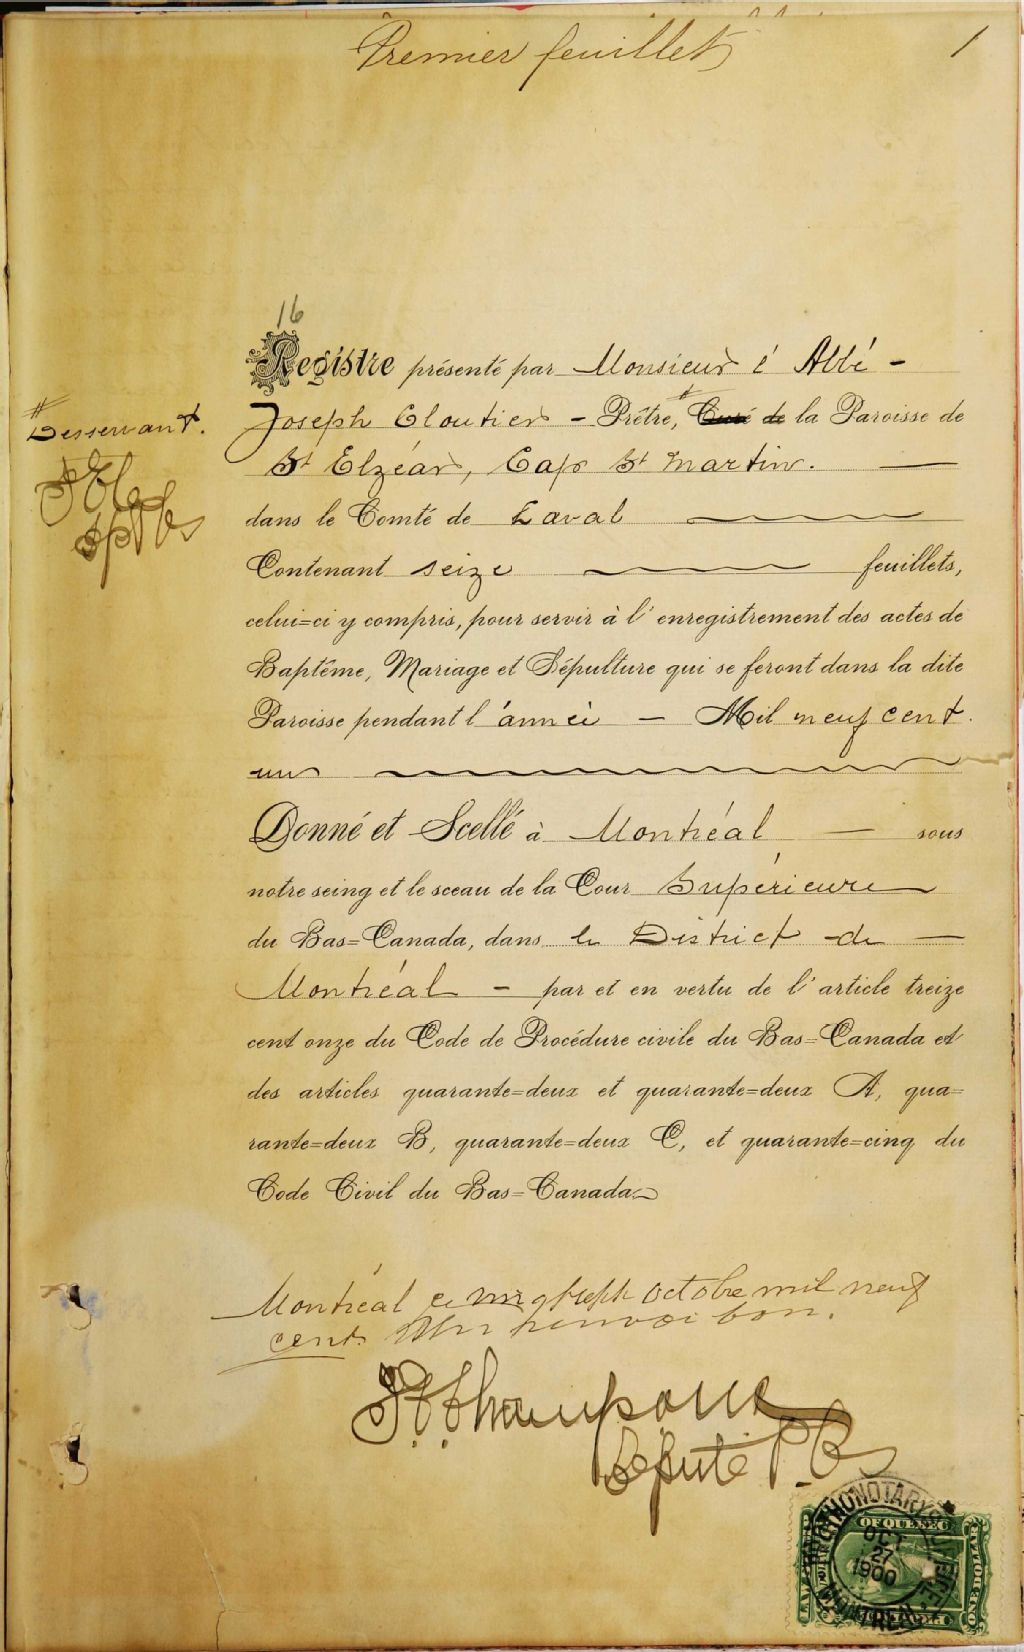 Premier feuillet
1
16
Registre présenté par Monsieur l'Abbé -
Desservant.
Joseph Cloutier - Prêtre, Curé de la Paroisse de
St Elzéar, Cap St Martin.
dans le Comté de Laval
Contenant seize feuillets,
celui=ci y compris, pour servir à l'enregistrement des actes de
Baptême, Mariage et Sépulture qui se feront dans la dite
Paroisse pendant l'année - Mil neuf cent
un
Donné et Scellé à Montréal - sous
notre seing et le sceau de la Cour Supérieure
du Bas=Canada, dans le District de -
Montréal - par et en vertu de l'article treize
cent onze du Code de Procédure civile du Bas=Canada et
des articles quarante=deux et quarante=deux A, qua=
rante=deux B, quarante=deux C, et quarante=cinq du
Code Civil du Bas=Canada
Montréal ce vingt sept octobre mil neuf
cent. Un renvoi bon.
Député P. C. S.
PROTHONOTARY'S OFFICE
OF QUEBEC
OCT
27
1900
MONTREAL